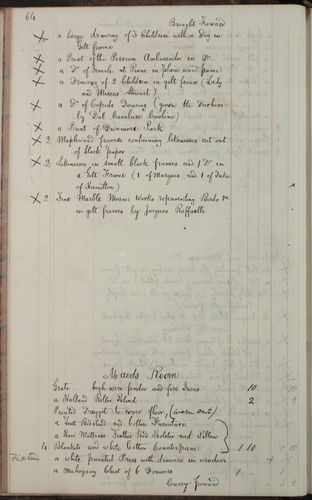 64
Brought Forward
X a large drawing of 3 Children with a Dog in
Gilt frame
X a Print of the Persian Ambassador in Do
X a Do of Female at Piano in plain wood frame
X a Drawing of 2 Children in gilt frame (Lady
and Misses Stewart)
X a Do of Cupids Dancing (given the Duchess
by Dal Cavaliere
X a Print of Dunmore Park
X 2 Maplewood frames containing likenesses cut out
of black paper
X 2 Likenesses in small black frames and 1 Do in
a Gilt Frame (1 of Marquis and 1 of Duke
of Hamilton)
X 2 Fine Marble Mosaic Works representing Birds &c
in gilt frames by Jacques Raffaelli
Maids Room
Grate high wire fender and fire Irons 10 10
a Holland Roller Blind 2 2
Painted Drugget to cover floor, (worn out)
a Tent Bedstead and Cotton Furniture
a Hair Mattress Feather Bed Bolster and Pillow
4 Blankets and white Cotton Counterpane 1 10 1 10
Fixture a white painted Press with drawers in window
a Mahogany Chest of 6 Drawers 1
Carry forward 3 2